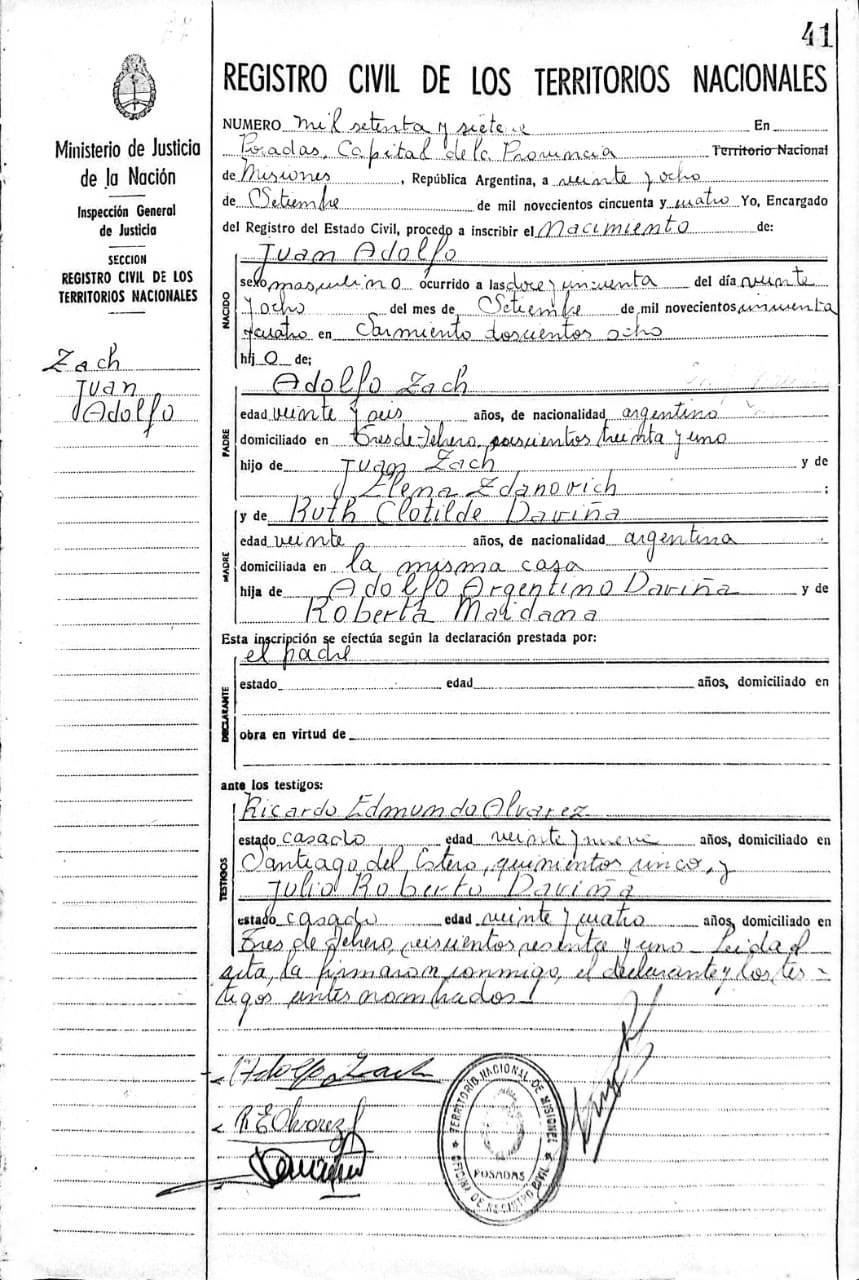 41
REGISTRO CIVIL DE LOS TERRITORIOS NACIONALES
Ministerio de Justicia
de la Nación
Inspección General
de Justicia
SECCION
REGISTRO CIVIL DE LOS
TERRITORIOS NACIONALES
Zach
Juan
Adolfo
NUMERO mil setenta y siete En
Posadas, Capital de la Provincia Territorio Nacional
de Misiones, República Argentina, a veinte y ocho
de Setiembre de mil novecientos cincuenta y cuatro Yo, Encargado
del Registro del Estado Civil, procedo a inscribir el Nacimiento de:
Juan Adolfo
NACIDO
sexo masculino ocurrido a las doce y cincuenta del día veinte
y ocho del mes de Setiembre de mil novecientos cincuenta
y cuatro en Sarmiento doscientos ocho
hij o de;
PADRE
Adolfo Zach
edad veinte y seis años, de nacionalidad argentino
domiciliado en Tres de Febrero, seiscientos treinta y uno
hijo de Juan Zach y de
Elena Zdanovich ;
MADRE
y de Ruth Clotilde Daviña
edad veinte años, de nacionalidad argentina
domiciliada en la misma casa
hija de Adolfo Argentino Daviña y de
Roberta Maidana
Esta inscripción se efectúa según la declaración prestada por:
el padre
DECLARANTE
estado edad años, domiciliado en
obra en virtud de
ante los testigos:
TESTIGOS
Ricardo Edmundo Alvarez
estado casado edad veinte y nueve años, domiciliado en
Santiago del Estero, quinientos cinco, y
Julio Roberto Daviña
estado casado edad veinte y cuatro años, domiciliado en
Tres de Febrero, seiscientos sesenta y uno - Leida el
acta, la firmaron conmigo, el declarante y los tes-
tigos antes nombrados -
Adolfo Zach
R E Alvarez
TERRITORIO NACIONAL DE MISIONES
POSADAS
OFICINA DE REGISTRO CIVIL